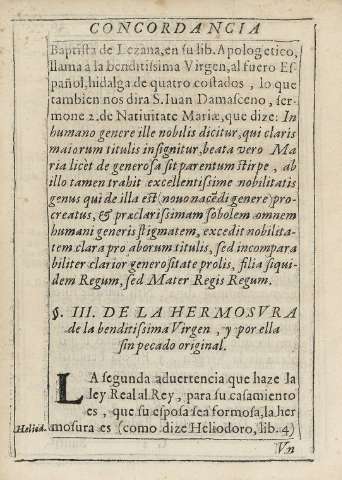 CONCORDANCIA
Baptista de Lezana, en su lib. Apologetico,
llama à la benditissima Virgen, al fuero Es-
pañol, hidalga de quatro costados, lo que
tambien nos dira S. Iuan Damasceno, ser-
mone 2. de Natiuitate Mariæ, que dize: In
humano genere ille nobilis dicitur, qui claris
maiorum titulis insignitur, beata vero Ma
ria licèt de generosa sit parentum stirpe, ab
illo tamen trahit excellentissime nobilitatis
genus qui de illa est (nouo nacēdi genere) pro-
creatus, & præclarissimam sobolem omnem
humani generis stigmatem, excedit nobilita-
tem clara pro aborum titulis, sed incompara
biliter clarior generositate prolis, filia siqui-
dem Regum, sed Mater Regis Regum.
§. III. DE LA HERMOSVRA
de la benditissima Virgen, y por ella
sin pecado original.
LA segunda aduertencia que haze la
ley Real al Rey, para su casamiento
es, que su esposa sea formosa, la her
Heliod. mosura es (como dize Heliodoro, lib. 4)
Vn